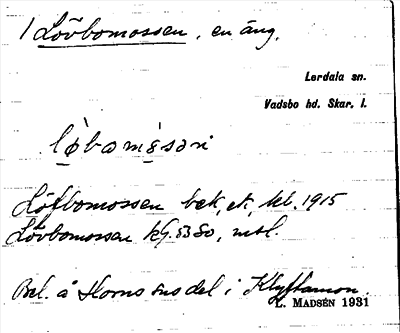 1 Lövbomossen, en äng.
Lerdala sn.
Vadsbo hd. Skar. l.
Löfbomossen bek, et, kb. 1915
Lövbomossen kg. 53 So, mtl.
Bel. å Horns
del i Klyftamon.
L. MADSÉN 1931